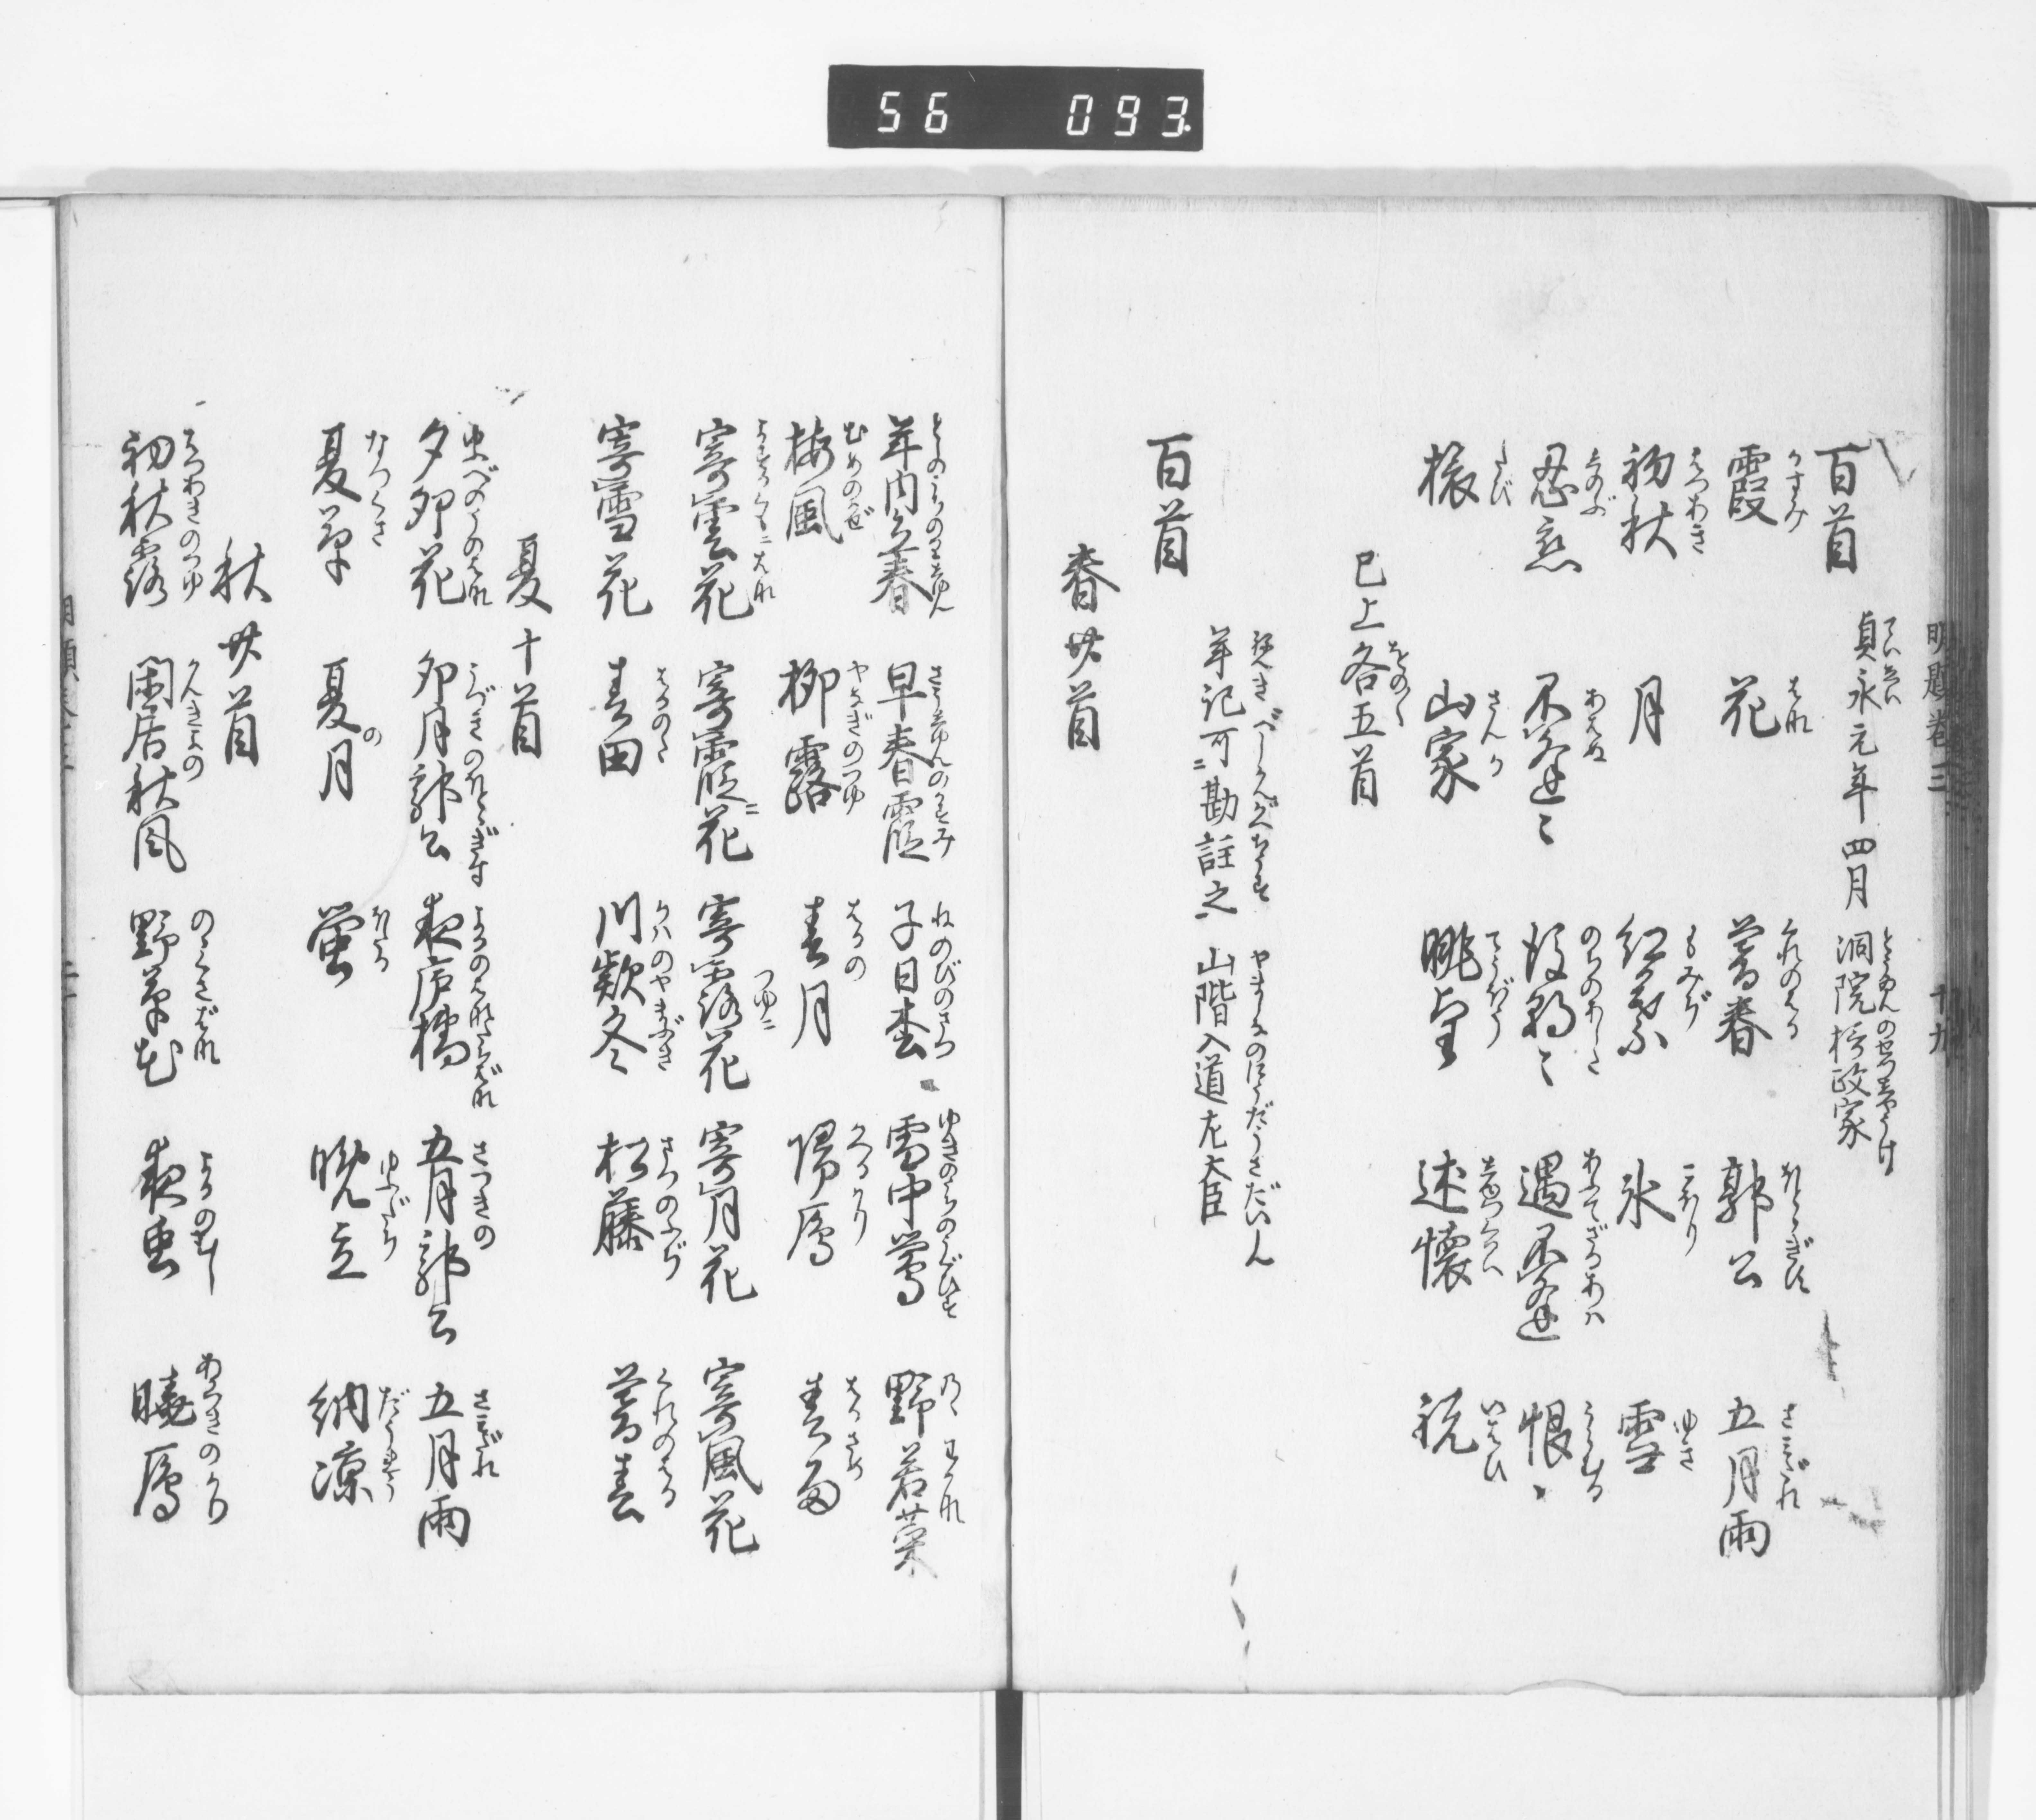 56 093
明題巻三 十九
百首 貞永元年四月 洞院摂政家
霞 花 暮春 郭公 五月雨
初秋 月 紅葉 氷 雪
忍恋 不逢〻 後朝〻 遇不逢〻 恨〻
旅 山家 眺望 述懐 祝
已上各五首
百首
年記可勘註之 山階入道左大臣
春廿首
年内立春 早春霞 子日松 雪中鶯 野若菜
梅風 柳露 春月 帰雁 春雨
寄雲花 寄霞花 寄露花 寄月花 寄風花
寄雪花 春田 川款冬 松藤 暮春
夏十首
夕卯花 卯月郭公 夜廬橘 五月郭公 五月雨
夏草 夏月 蛍 晩立 納凉
秋廿首
初秋露 閑居秋風 野草花 夜虫 暁雁